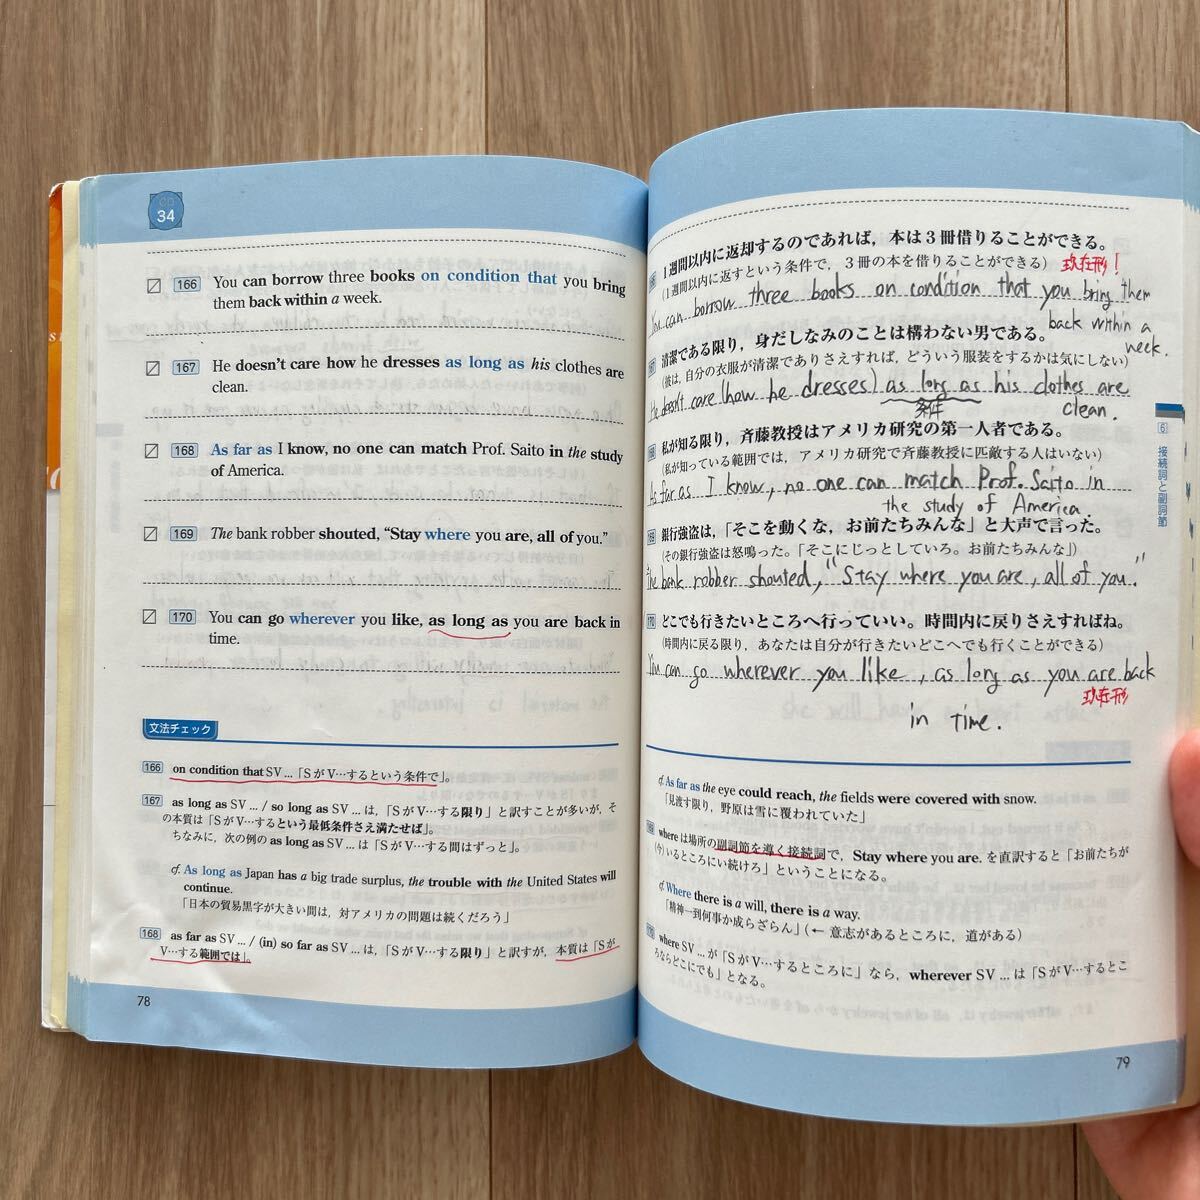 CD
34
166 You can borrow three books on condition that you bring
them back within a week.
167 He doesn't care how he dresses as long as his clothes are
clean.
168 As far as I know, no one can match Prof. Saito in the study
of America.
169 The bank robber shouted, “Stay where you are, all of you.”
170 You can go wherever you like, as long as you are back in
time.
文法チェック
166 on condition that SV ... 「SがV…するという条件で」。
167 as long as SV ... / so long as SV ... は,「SがV…する限り」と訳すことが多いが, そ
の本質は「SがV…するという最低条件さえ満たせば」。
ちなみに, 次の例の as long as SV ... は「SがV…する間はずっと」。
cf. As long as Japan has a big trade surplus, the trouble with the United States will
continue.
「日本の貿易黒字が大きい間は, 対アメリカの問題は続くだろう」
168 as far as SV ... / (in) so far as SV ... は,「SがV…する限り」と訳すが, 本質は「Sが
V…する範囲では」。
78
1週間以内に返却するのであれば, 本は3冊借りることができる。
(1週間以内に返すという条件で, 3冊の本を借りることができる) 現在形!
You can borrow three books on condition that you bring them
back within a
week.
清潔である限り, 身だしなみのことは構わない男である。
(彼は, 自分の衣服が清潔でありさえすれば, どういう服装をするかは気にしない)
He doesn't care (how he dresses) as long as his clothes are
条件
clean.
私が知る限り, 斉藤教授はアメリカ研究の第一人者である。
(私が知っている範囲では, アメリカ研究で斉藤教授に匹敵する人はいない)
As far as I know, no one can match Prof. Saito in
the study of America.
169 銀行強盗は,「そこを動くな, お前たちみんな」と大声で言った。
(その銀行強盗は怒鳴った。「そこにじっとしていろ。お前たちみんな」)
The bank robber shouted, "Stay where you are, all of you."
170 どこでも行きたいところへ行っていい。時間内に戻りさえすればね。
(時間内に戻る限り, あなたは自分が行きたいどこへでも行くことができる)
You can go wherever you like, as long as you are back
現在形
in time.
cf. As far as the eye could reach, the fields were covered with snow.
「見渡す限り, 野原は雪に覆われていた」
169 where は場所の副詞節を導く接続詞で, Stay where you are. を直訳すると「お前たちが
(今)いるところにい続けろ」ということになる。
cf. Where there is a will, there is a way.
「精神一到何事か成らざらん」(← 意志があるところに, 道がある)
170 where SV ... が「SがV…するところに」なら, wherever SV ... は「SがV…するとこ
ろならどこにでも」となる。
79
6 接続詞と副詞節